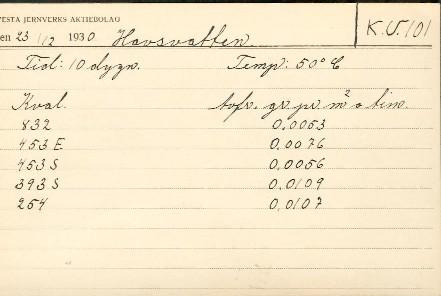 VESTA JERNVERKS AKTIEBOLAG
en 23/12 1930 Havsvatten. K.U. 101
Tid: 10 dygn. Temp: 50° C
Kval. förl. gr. pr. m² o tim.
832 0.0053
453 E 0.0076
453 S 0.0056
393 S 0.0109
254 0.0107